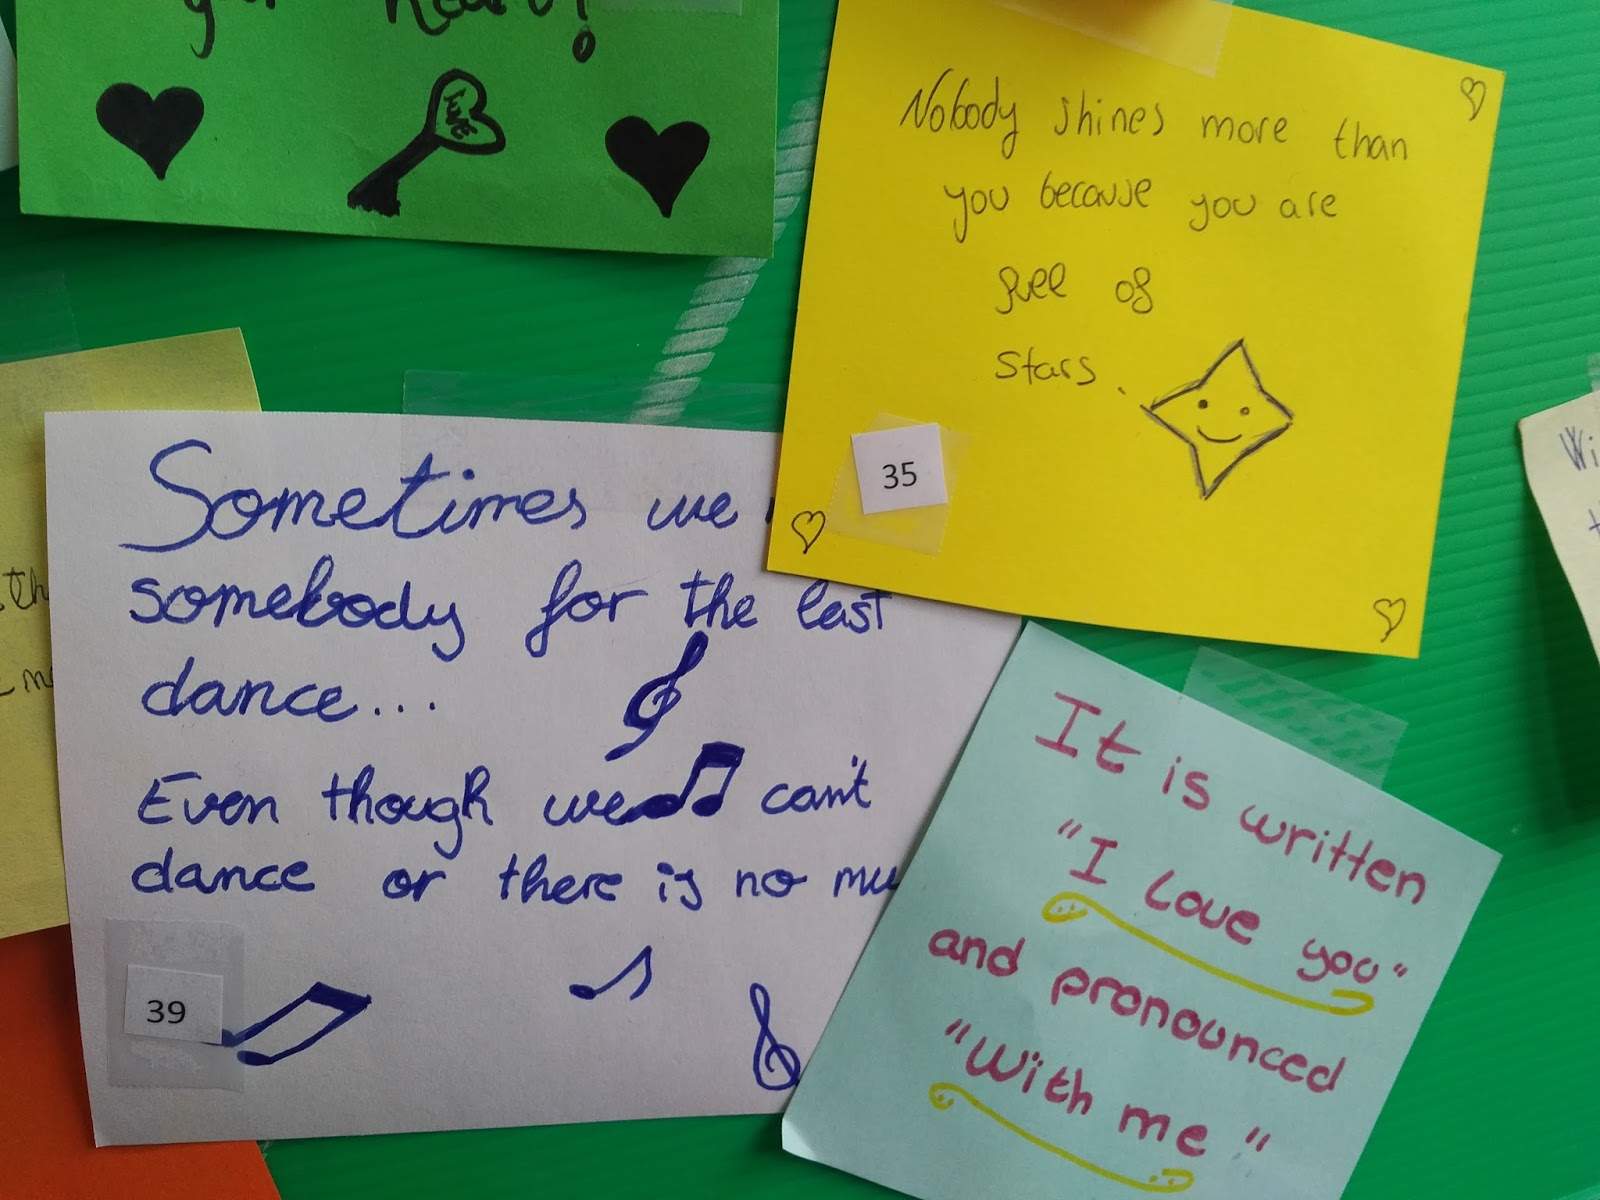 your heart!
Love
Nobody shines more than
you because you are
full of
stars.
35
Sometimes we
somebody for the last
dance...
Even though we can't
dance or there is no mu
39
It is written
"I Love you"
and pronounced
"With me"
Wi